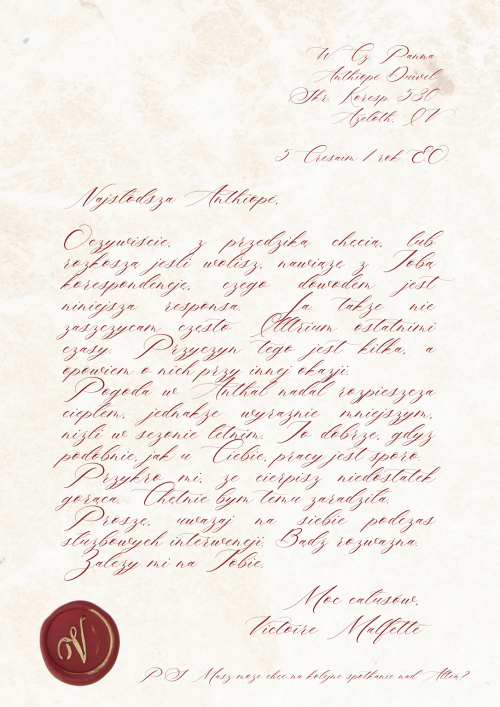 W. Cz. Panna
Anthiope Duivel
Skr. Koresp. 530
Azeloth, QV
5 Cresaim 1 rok EO.
Najslodsza Anthiope,
Oczywiscie, z przedzika checia, lub
rozkosza jesli wolisz, nawiaze z Toba
korespondencje, czego dowodem jest
niniejsza responsa. Ja takze nie
zaszczycam czesto Alltrium ostatnimi
czasy. Przyczyn tego jest kilka, a
opowiem o nich przy innej okazji.
Pogoda w Anthal nadal rozpieszcza
cieplem, jednakze wyraznie mniejszym,
nizli w sezonie letnim. To dobrze, gdyz
podobnie, jak u Ciebie, pracy jest sporo.
Przykro mi, ze cierpisz niedostatek
goraca. Chetnie bym temu zaradzila.
Prosze, uwazaj na siebie podczas
sluzbowych interwencji. Badz rozwazna.
Zalezy mi na Tobie.
Moc calusow,
Victoire Malfette
V
PS Masz moze chec na kolejne spotkanie nad Altea?